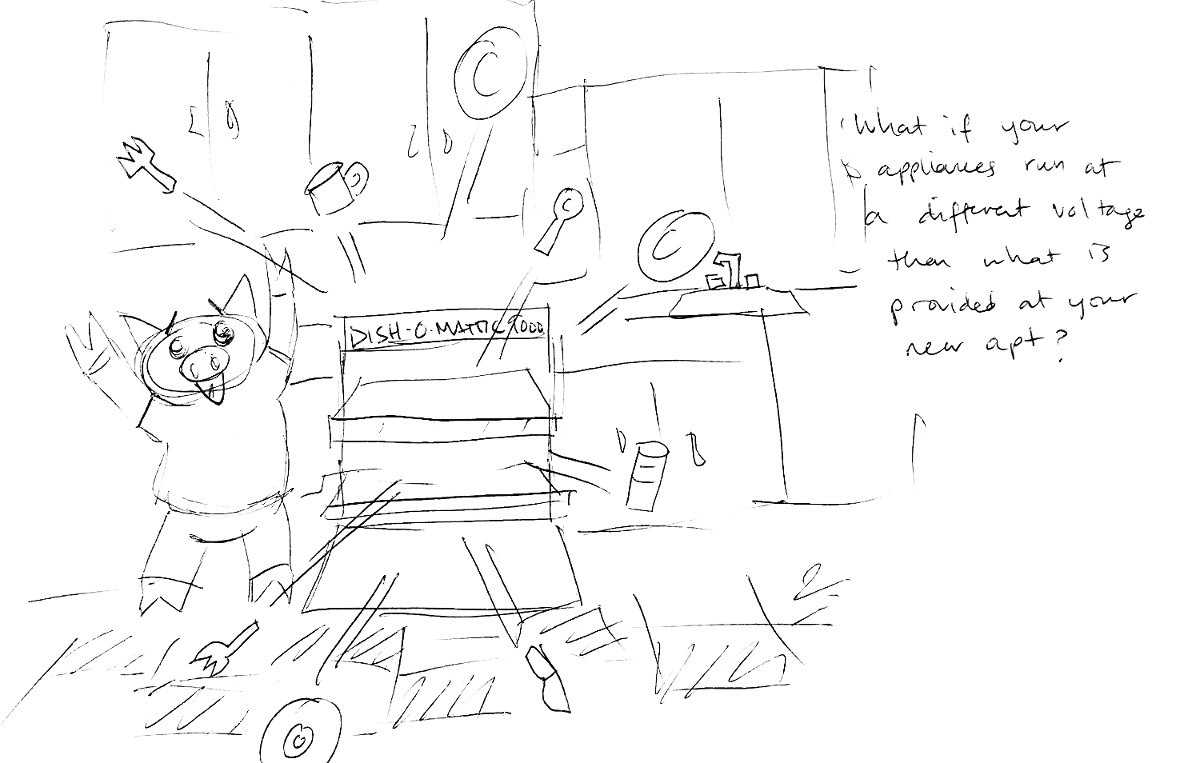 DISH-O-MATTIC 7000
What if your
appliances run at
a different voltage
then what is
provided at your
new apt?